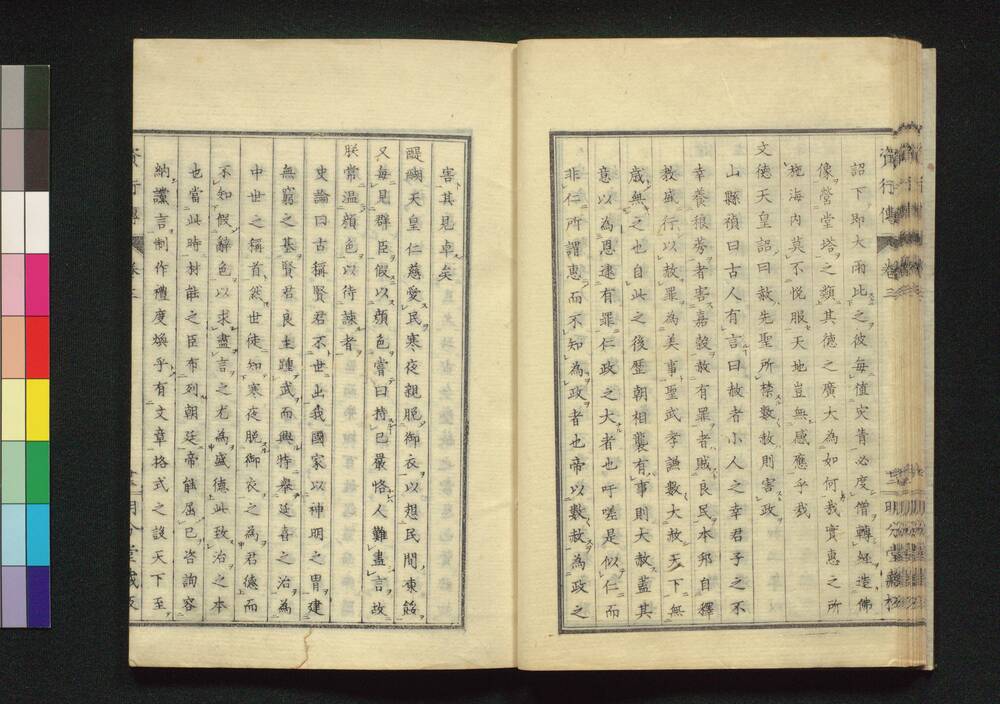 詔下即大雨此之彼每值灾眚必度僧轉經造佛
像營堂塔之類其德之廣大為如何哉實惠之所
施海內莫不悅服天地豈無感應乎哉
文德天皇詔曰赦先聖所禁數赦則害政
山縣禎曰古人有言曰赦者小人之幸君子之不
幸養稂莠者害嘉穀赦有罪者賊良民本邦自釋
教盛行以赦罪為美事聖武孝謙數大赦天下無
歲無之也自此之後歷朝相襲有事則大赦蓋其
意以為恩逮有罪仁政之大者也吁嗟是似仁而
非仁所謂惠而不知為政者也帝以數赦為政之
害其見卓矣
醍醐天皇仁慈愛民寒夜親脫御衣以想民間凍餒
又每見群臣假以顏色嘗曰持己嚴恪人難盡言故
朕常溫顏色以待諫者
史論曰古稱賢君不世出我國家以神明之胄建
無窮之基賢君良主踵武而興特舉延喜之治為
中世之稱首然世徒知寒夜脫御衣之為君德而
不知假辭色以求盡言之尤為盛德此致治之本
也當此時材能之臣布列朝廷帝能屈己咨詢容
納讜言制作禮度煥乎有文章格式之設天下至